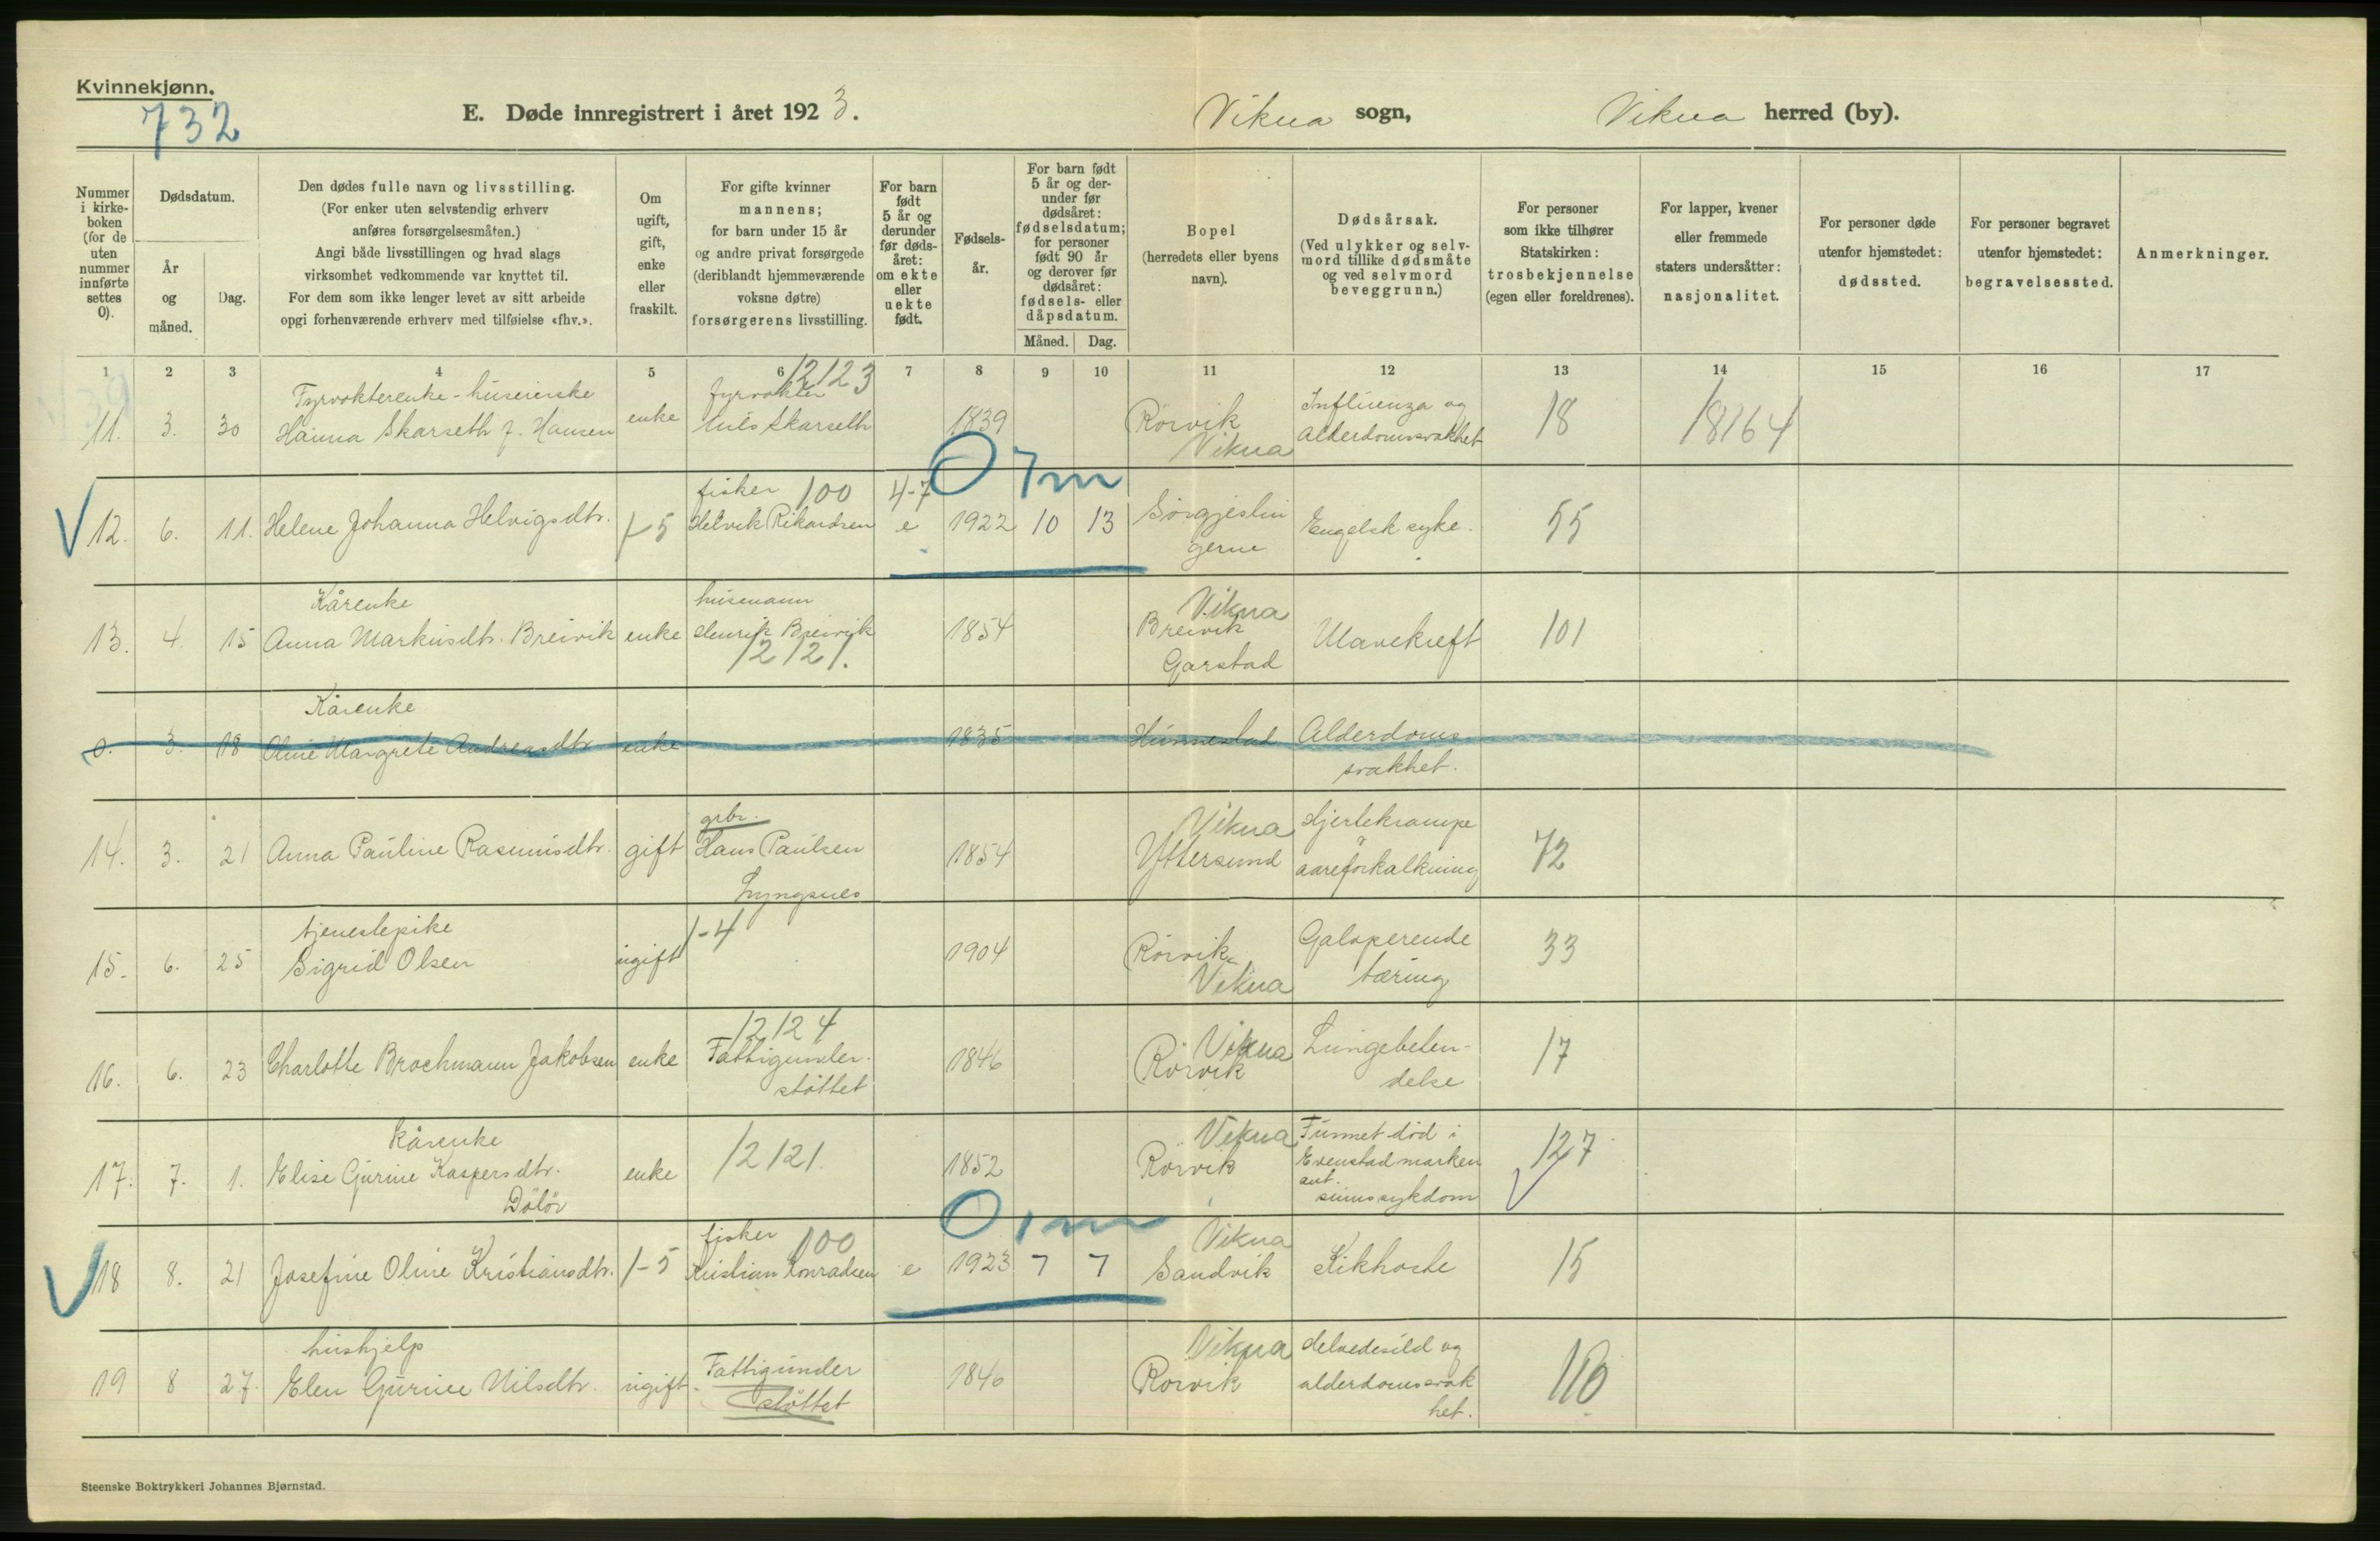 Kvinnekjønn.
732
E. Døde innregistrert i året 1923.
Vikna sogn,
Vikna herred (by).
Nummer i kirkeboken (for de uten nummer innførte settes 0).
Dødsdatum.
År og måned.
Dag.
Den dødes fulle navn og livsstilling.
(For enker uten selvstendig erhverv
anføres forsørgelsesmåten.)
Angi både livsstillingen og hvad slags
virksomhet vedkommende var knyttet til.
For dem som ikke lenger levet av sitt arbeide
opgi forhenværende erhverv med tilføielse «fhv.».
Om
ugift,
gift,
enke
eller
fraskilt.
For gifte kvinner
mannens;
for barn under 15 år
og andre privat forsørgede
(deriblandt hjemmeværende
voksne døtre)
forsørgerens livsstilling.
For barn
født
5 år og
derunder
før døds-
året:
om ekte
eller
uekte
født.
Fødsels-
år.
For barn født
5 år og der-
under før
dødsåret:
fødselsdatum;
for personer
født 90 år
og derover før
dødsåret:
fødsels- eller
dåpsdatum.
Måned. Dag.
Bopel
(herredets eller byens
navn).
Dødsårsak.
(Ved ulykker og selv-
mord tillike dødsmåte
og ved selvmord
beveggrunn.)
For personer
som ikke tilhører
Statskirken:
trosbekjennelse
(egen eller foreldrenes).
For lapper, kvener
eller fremmede
staters undersåtter:
nasjonalitet.
For personer døde
utenfor hjemstedet:
dødssted.
For personer begravet
utenfor hjemstedet:
begravelsessted.
Anmerkninger.
1 2 3 4 5 6 7 8 9 10 11 12 13 14 15 16 17
12123
Fyrvokterenke - huseierske fyrvokter Influenza og
11. 3. 30 Hanna Skarseth f. Hansen enke Nils Skarseth 1839 Rörvik Alderdomssvakhet 18 18164
Vikna
0 7m
fisker 100 4-7
12. 6. 11. Helene Johanna Helvigsdtr. 1-5 Helvik Rikardsen e 1922 10 13 Engelsk syke. 55
Kårenke husmann Vikna
13. 4. 15 Anna Markusdtr. Breivik enke Henrik Breivik 1854 Breivik Mavekreft 101
12121. Garstad
Kårenke
0. 3. 18 Oline Margrete Andreasdtr. enke 1835 Hunnestad Alderdoms
svakhet.
grbr. Vikna Hjertekrampe
14. 3. 21 Anna Pauline Rasmusdtr. gift Hans Paulsen 1854 Yttersund aareforkalkning 72
Lyngsnes
tjenestepike 1-4
15. 6. 25 Sigrid Olsen ugift 1904 Rörvik Galoperende 33
Vikna tæring
12124
16. 6. 23 Charlotte Brochmann Jakobsen enke Fattigunder- 1846 Vikna Lungebeten- 17
støttet Rörvik delse
kårenke Vikna Funnet död i
17. 7. 1. Elise Gurine Kaspersdtr. enke 12121. 1852 Rörvik Evenstadmarken 127
Dölör ant.
sinnssykdom
0 1m
fisker 100 Vikna
18 8. 21 Josefine Oline Kristiansdtr. 1-5 Kristian Konradsen e 1923 7 7 Sandvik Kikhoste 15
hushjelp Vikna Helvedesild og
19 8 27. Elen Gurine Nilsdtr. ugift Fattigunder 1840 Rorvik alderdomssvak
støttet het.
Steenske Boktrykkeri Johannes Bjørnstad.